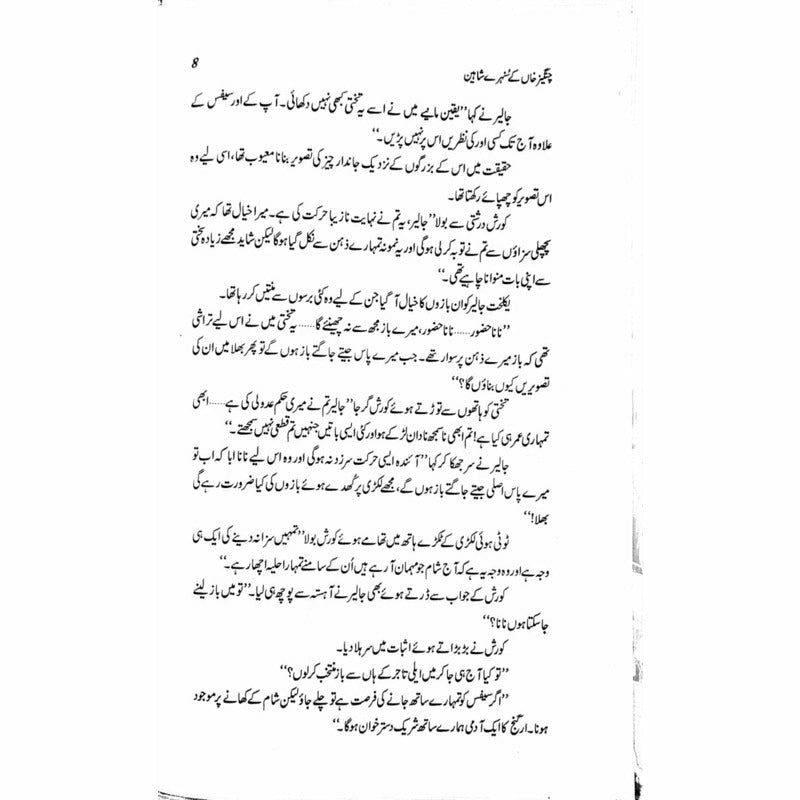 8
چنگیز خاں کے سُنہرے شاہین
جالیر نے کہا ’’یقین مانیے میں نے اسے یہ تختی کبھی نہیں دکھائی۔ آپ کے اور سیفس کے
علاوہ آج تک کسی اور کی نظریں اس پر نہیں پڑیں۔‘‘
حقیقت میں اس کے بزرگوں کے نزدیک جاندار چیز کی تصویر بنانا معیوب تھا، اسی لیے وہ
اس تصویر کو چھپائے رکھتا تھا۔
کورش درشتی سے بولا ’’جالیر، یہ تم نے نہایت نازیبا حرکت کی ہے۔ میرا خیال تھا کہ میری
پچھلی سزاؤں سے تم نے توبہ کر لی ہوگی اور یہ نمونہ تمہارے ذہن سے نکل گیا ہوگا لیکن شاید مجھے زیادہ سختی
سے اپنی بات منوانا چاہیے تھی۔‘‘
یکلخت جالیر کو ان بازوں کا خیال آ گیا جن کے لیے وہ کئی برسوں سے منتیں کر رہا تھا۔
’’نانا حضور...... نانا حضور، میرے باز مجھ سے نہ چھینئے گا...... یہ تختی میں نے اس لیے تراشی
تھی کہ باز میرے ذہن پر سوار تھے۔ جب میرے پاس جیتے جاگتے باز ہوں گے تو پھر بھلا میں ان کی
تصویریں کیوں بناؤں گا؟‘‘
تختی کو ہاتھوں سے توڑتے ہوئے کورش گرجا ’’جالیر تم نے میری حکم عدولی کی ہے...... ابھی
تمہاری عمر ہی کیا ہے! تم ابھی ناسمجھ نادان لڑکے ہو اور کئی ایسی باتیں جنہیں تم قطعی نہیں سمجھتے۔‘‘
جالیر نے سر جھکا کر کہا ’’آئندہ ایسی حرکت سرزد نہ ہوگی اور وہ اس لیے نانا ابا کہ اب تو
میرے پاس اصلی جیتے جاگتے باز ہوں گے، مجھے لکڑی پر کُھدے ہوئے بازوں کی کیا ضرورت رہے گی
بھلا!‘‘
ٹوٹی ہوئی لکڑی کے ٹکڑے ہاتھ میں تھامے ہوئے کورش بولا ’’تمہیں سزا نہ دینے کی ایک ہی
وجہ ہے اور وہ وجہ یہ ہے کہ آج شام جو مہمان آ رہے ہیں اُن کے سامنے تمہارا حلیہ اچھا رہے۔‘‘
کورش کے جواب سے ڈرتے ہوئے بھی جالیر نے آہستہ سے پوچھ ہی لیا۔ ’’تو میں باز لینے
جا سکتا ہوں نانا؟‘‘
کورش نے بڑبڑاتے ہوئے اثبات میں سر ہلا دیا۔
’’تو کیا آج ہی جا کر میں ایلی تاجر کے ہاں سے باز منتخب کر لوں؟‘‘
’’اگر سیفس کو تمہارے ساتھ جانے کی فرصت ہے تو چلے جاؤ لیکن شام کے کھانے پر موجود
ہونا۔ ارگنج کا ایک آدمی ہمارے ساتھ شریک دسترخوان ہوگا۔‘‘